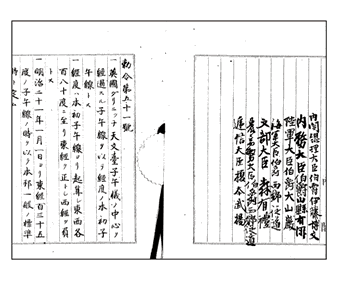 内閣總理大臣伯爵伊藤博文
内務大臣伯爵山縣有朋
陸軍大臣伯爵大山巖
海軍大臣伯爵西郷從道
文部大臣森有禮
大臣伯爵西郷從道
遞信大臣榎本武揚
勅令第五十一號
一英國グリニッチ天文臺子午儀ノ中心ヲ
經過スル子午線ヲ以テ經度ノ本初子
午線トス
一經度ハ本初子午線ヨリ起算シ東西各
百八十度ニ至リ東經ヲ正トシ西經ヲ負
トス
一明治二十一年一月一日ヨリ東經百三十五
度ノ子午線ノ時ヲ以テ本邦一般ノ標準
時ト定ム